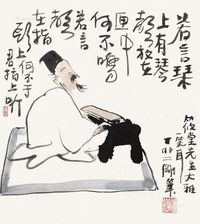 若言琴
上有琴
声放在
匣中
何不鸣
若言
声
在指
头上何不于
君指上听
堂先生大雅